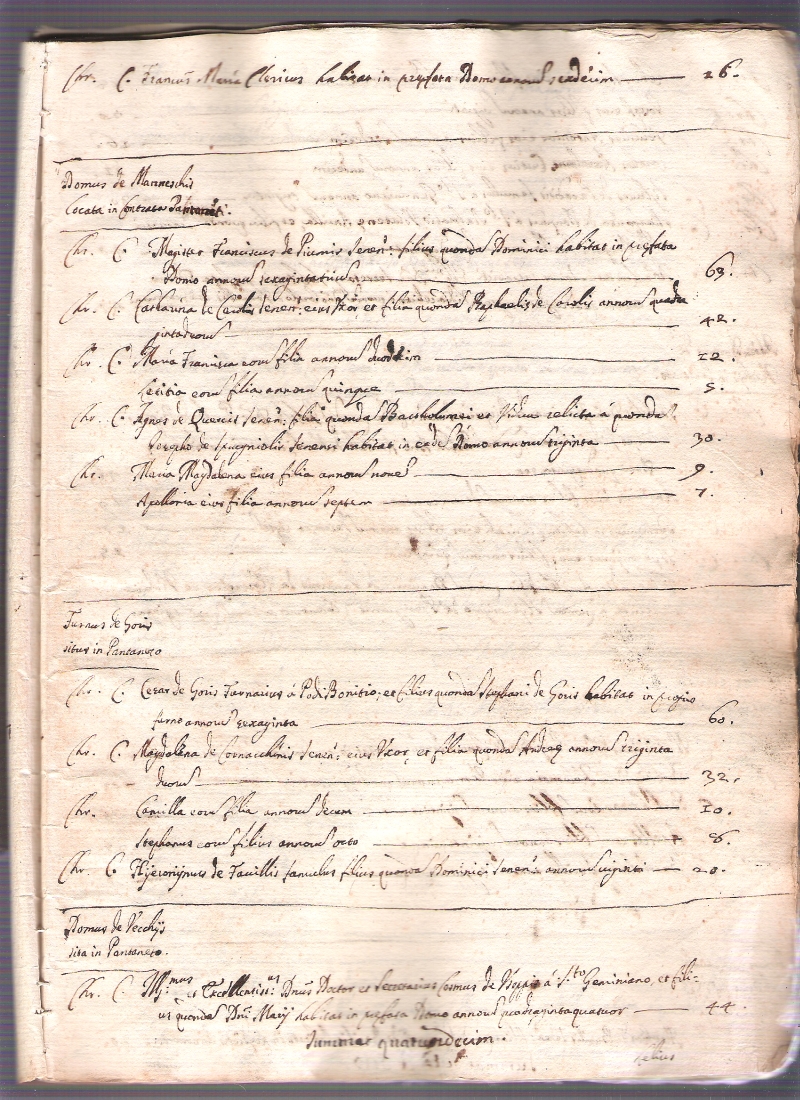 Chr. C. Francus Maria Clericus habitat in prefata Domo annorum sexdecim — 16.
Domus de Marineschis
Locata in Contrata Pantaneti.
Chr. C. Magister Franciscus de Piumis Senens: filius quondam Dominici habitat in prefata
Domo annorum sexagintatrium — 63.
Chr. C. Catharina de Carolis Senens: eius Uxor, et filia quondam Raphaelis de Carolis annorum quadra
gintaduorum — 42.
Chr. C. Maria Francisca eorum filia annorum duodecim — 12.
Letitia eorum filia annorum quinque — 5.
Chr. C. Agnes de Quercis Senens: filia quondam Bartholumei et Vidua relicta à quondam
Josepho de Spagniolis Senensi habitat in eadem Domo annorum triginta — 30.
Chr. Maria Magdalena eius filia annorum novem — 9.
Apolloria eius filia annorum septem — 7.
Furnus de Goris
situs in Pantaneto
Chr. C. Cesar de Goris Furnarius à Podi Bonitio, et filius quondam Stephani de Goris habitat in proprio
furno annorum sexaginta — 60.
Chr. C. Magdalena de Cornacchinis Senens: eius Uxor, et filia quondam Andreę annorum triginta
duorum — 32.
Chr. Camilla eorum filia annorum decem — 10.
Stephanus eorum filius annorum octo — 8.
Chr. C. Hijeronijmus de Favillis famulus filius quondam Dominici Senens: annorum viginti — 20.
Domus de Vecchijs
sita in Pantaneto.
Chr. C. Ill:mus et Excellentiss:us Dnus Doctor et Secretarius Cosmus de à S.to Geminiano, et fili-
us quondam Dni Marij habitat in prefata Domo annorum quadragintaquatuor — 44.
Summat quatuordecim.